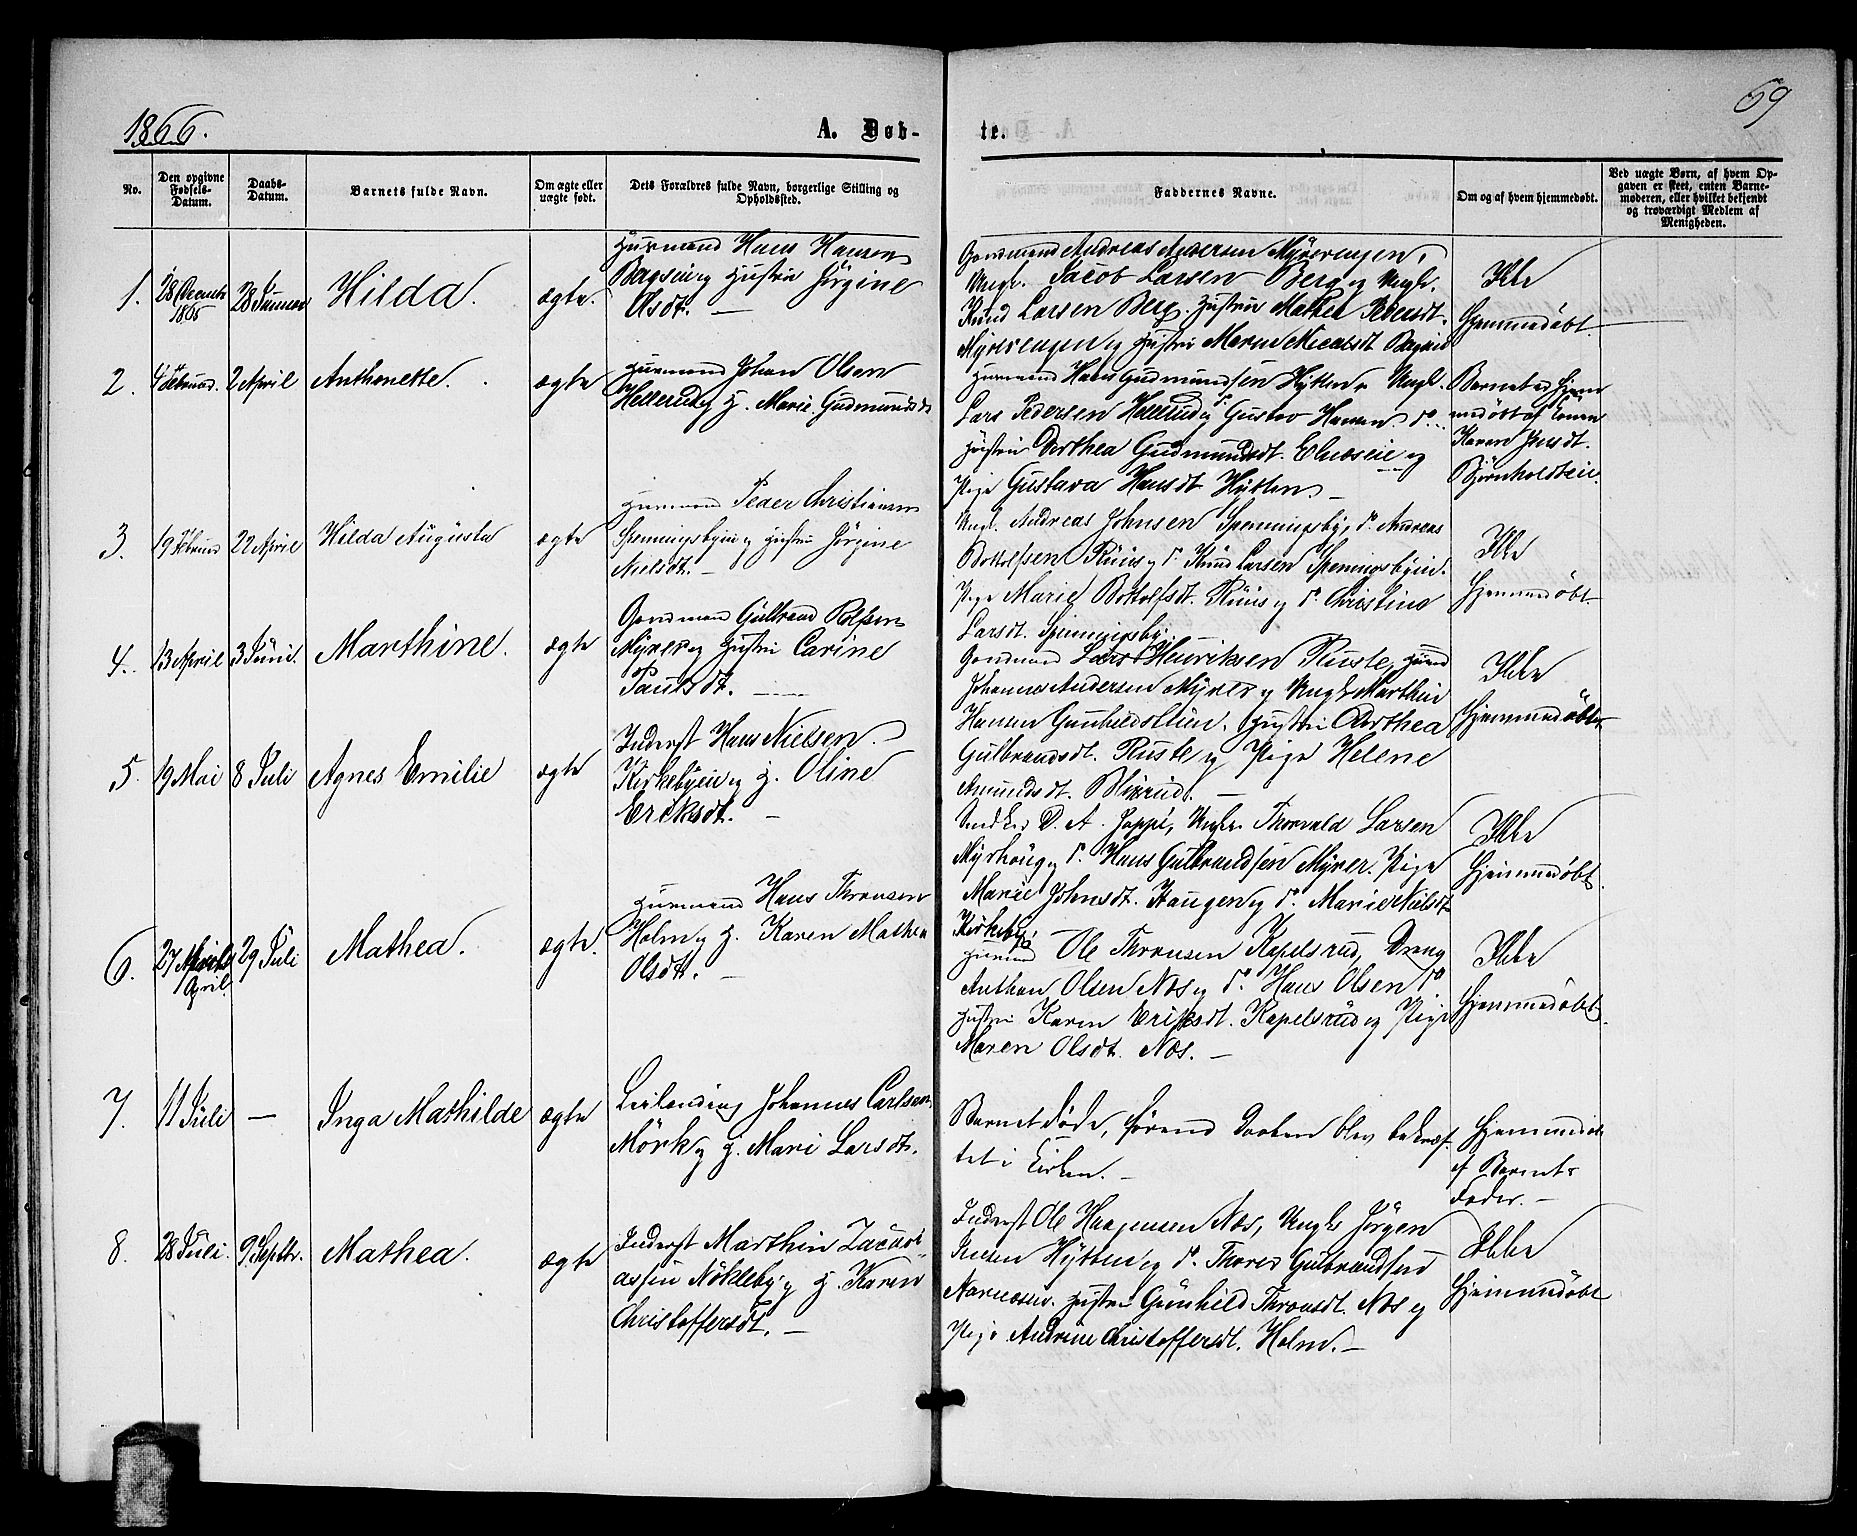 1866.
A. Døb-
te.
69
No.
Den opgivne Fødsels-Datum.
Daabs-Datum.
Barnets fulde Navn.
Om ægte eller uægte født.
Dets Forældres fulde Navn, borgerlige Stilling og Opholdssted.
Faddernes Navne.
Om og af hvem hjemmedøbt.
Ved uægte Børn, af hvem Op-
gaven er skeet, enten Barne-
moderen, eller hvilket bekjendt
og troværdigt Medlem af
Menigheden.
1.
1865
28 Januar
Hilda.
ægte.
Huusmand Hans Hansen
og Hustru Jørgine
Olsdt.
Gaardmand Andreas Andersen Myrerengen,
Ungk. Jacob Larsen Berg og Ungk.
Knud Larsen Berg. Hustru Mathea
Myrerengen og Hustru Maren
Ikke
Hjemmedøbt
2.
4 Februar.
2 April
Anthonette.
ægte
Huusmand Johan Olsen
Hellerud og H. Marie Gudmundsdt
Huusmand Hans Gudmundsen Hytten, Ungk.
Lars Pedersen Hellerud og Gustav Hansen do
Hustru Dorthea Gudmundsdt. og
Pige Gustava Hansdt Hytten. —
Barnet er Hjem
medøbt af Konen
Karen Jensdt.
Bjørnholdteie.
3.
19 Februar
22 April
Hilda Augusta
ægte
Huusmand Peder Christiansen
Spenningsbyeie og Hustru Jørgine
Nielsdt. —
Ungk. Andreas Johnsen Spenningsby, do Andreas
Bottolfsen Ruus og do Knud Larsen Spenningsbyeie.
Pige Marie Bottolfsdt. Ruus og do Christine
Larsdt. Spenningsby.
Ikke
Hjemmedøbt
4.
13 April
3 Juni.
Marthine.
ægte
Gaardmand Gulbrand Rolfsen
Myrer og Hustru Carine
Paulsdt. —
Gaardmand Lars Henriksen Ruste,
Johannes Andersen Myrer og Ungk. Marthin
Hansen Gunhildsteien. Hustru Dorthea
Gulbrandsdt. Ruste og Pige Helene
Amundsdt. Blixrud. —
Ikke
Hjemmedøbt
5.
19 Mai
8 Juli
Agnes Emilie
ægte
Inderst Hans Nielsen
Kirkebyeie og H. Oline
Eriksdt. —
D. A. Ungk. Thorvald Larsen
Myrhaug og do Hans Gulbrandsen Myrer. Pige
Marie Johnsdt. Haugen og do Marie Nielsdt
Kirkeby.
Ikke
Hjemmedøbt.
6.
27
April.
29 Juli
Mathea.
ægte.
Huusmand Hans Thronsen
Holm og H. Karen Mathea
Olsdt. —
Huusmd Ole Thronsen Kapelsrud, Dreng
Anthon Olsen Næs og do Hans Olsen do
Hustru Karen Eriksdt. Kapelsrud og Pige
Maren Olsdt. Næs. —
Ikke
Hjemmedøbt.
7.
11 Juli
—
Inga Mathilde
ægte
Leilending Johannes Carlsen
Mørk og H. Mari Larsdt.
Barnet døde, førend Daaben blev bekræf-
tet i Kirken. —
Hjemmedøbt
af Barnets
Fader. —
8.
28 Juli.
9 Septbr.
Mathea.
ægte
Inderst Marthin Zacari-
assen Nökleby og H. Karen
Christoffersdt. —
Inderst Ole Haagensen Næs, Ungk. Jørgen
Hytten og do Thores Gulbrandsen
Hustru Gunhild Thronsdt. Næs og
Pige Andrine Christoffersdt. Holm. —
Ikke
Hjemmedøbt